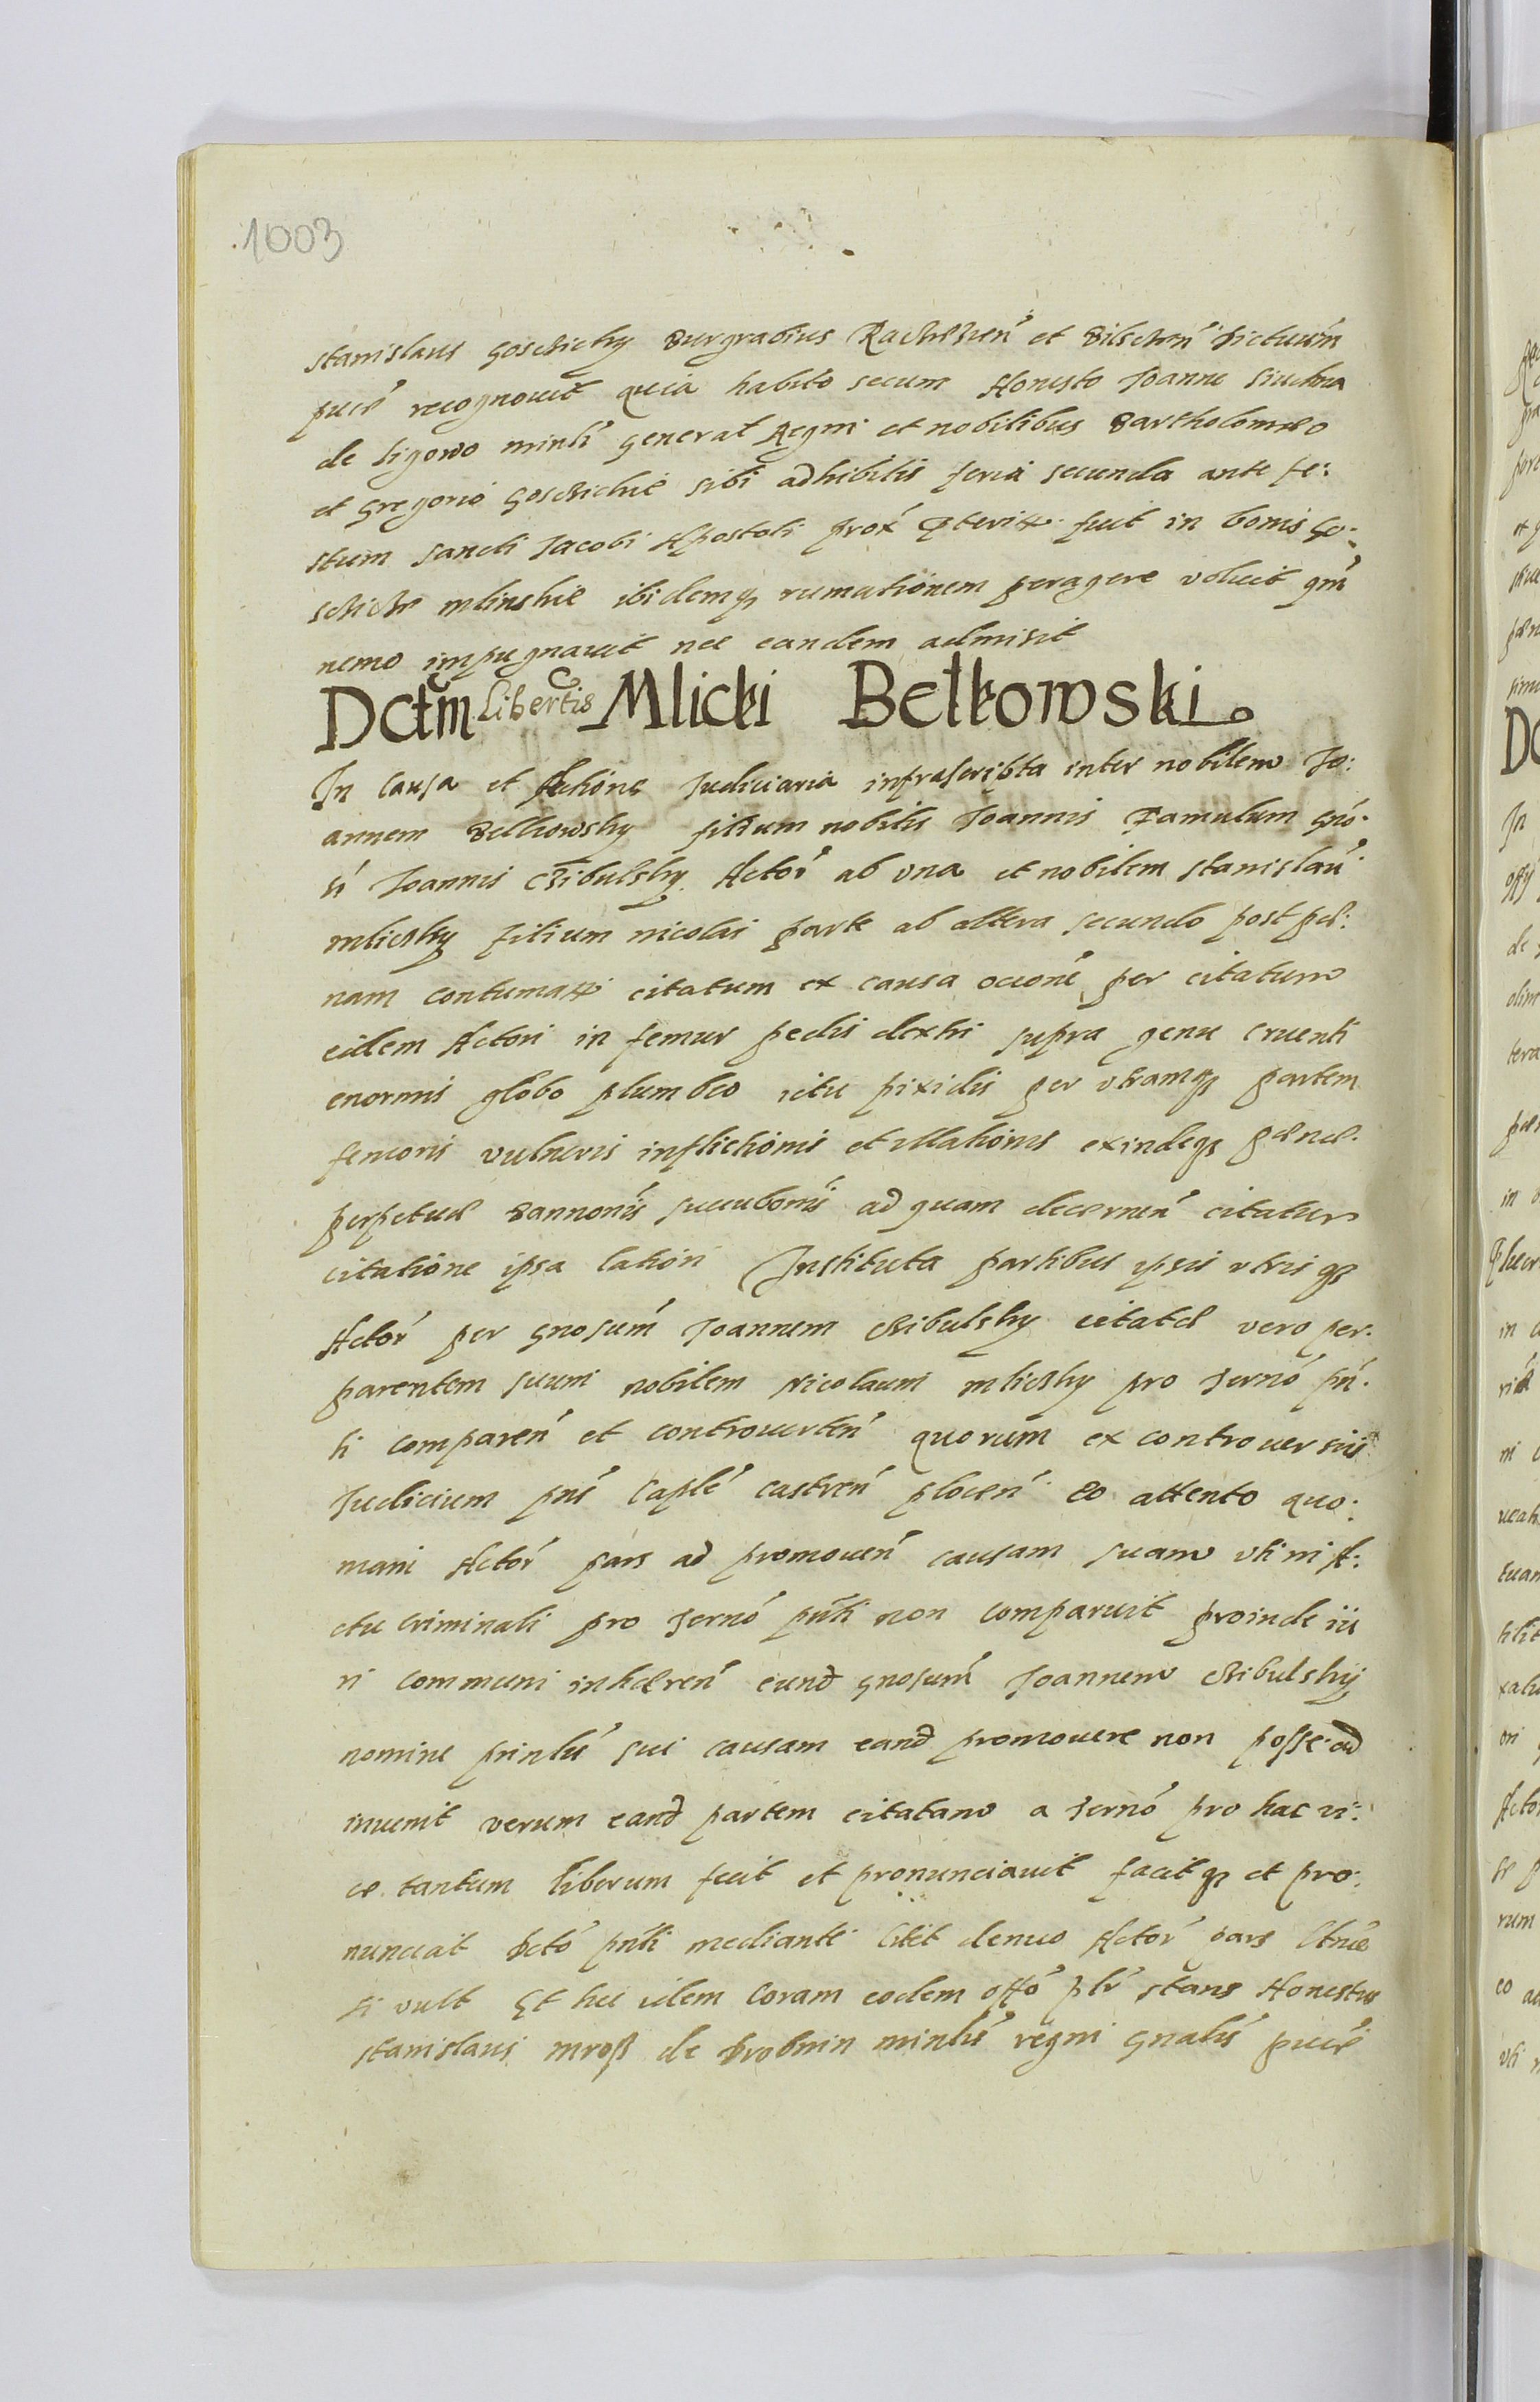 1003
Stanislaus Gosczichy Burgrabius Raczezen et Bilschen
puce recognovit quia habito secum Honesto Joanne Siuchna
de Ligowo minli general Regni et nobilibus Bartholomeo
et Gregorio Gosczickie sibi adhibitis feria secunda ante fe:
stum Sancti Jacobi Apostoli prox fuit in bonis Go-
sczicze mlinskie ibidemq rumationem peragere voluit qm
nemo impugnavit nec eandem admisit
Dctm Libertis Mlicki Bełkowski
In causa et Actione Judiciaria infrascripta inter nobilem Jo:
annem Belkowsky filium nobilis Joannis Famulum gno-
si Joannis Czibulsky Actor ab una et nobilem Stanislau
mliczky filium nicolai parte ab altera secundo post pd:
nam contumatiae citatum ex causa per citatum
eidem Actori in femur pedis dextri supra genu cruenti
enormis globo plumbeo ictu pixidis per utramq partem
femoris vulneris inflictionis et illationis exindeq paenae
perpetuae Bannonis sucubonis ad quam decernen citatur
citatione ipsa latiori Instituta partibus ipsis utrisq
Actor per gnosum Joannem Czibulsky citatae vero per
parentem suum nobilem Nicolaum mliczky pro termo pn-
ti comparen et controverten quorum ex controversiis
Judicium pns Caple castren plocen Eo attento quo:
niam Actor pars ad promoven causam suam uti in A:
ctu criminali pro termo pnti non comparuit proinde iu
ri communi inhaeren eund gnosum Joannem Czibulsky
nomine prinlis sui causam eand promovere non posse ad
invenit verum eand partem citatam a termo pro hac vi:
ce tantum liberum fecit et pronunciavit facitq et pro:
nunciat dcto pnti mediante Citet denuo Actor pars
si vult Et hic idem Coram eodem offo plr stans Honestus
Stanislaus mroß de Drobnin minlis regni gnalis puce